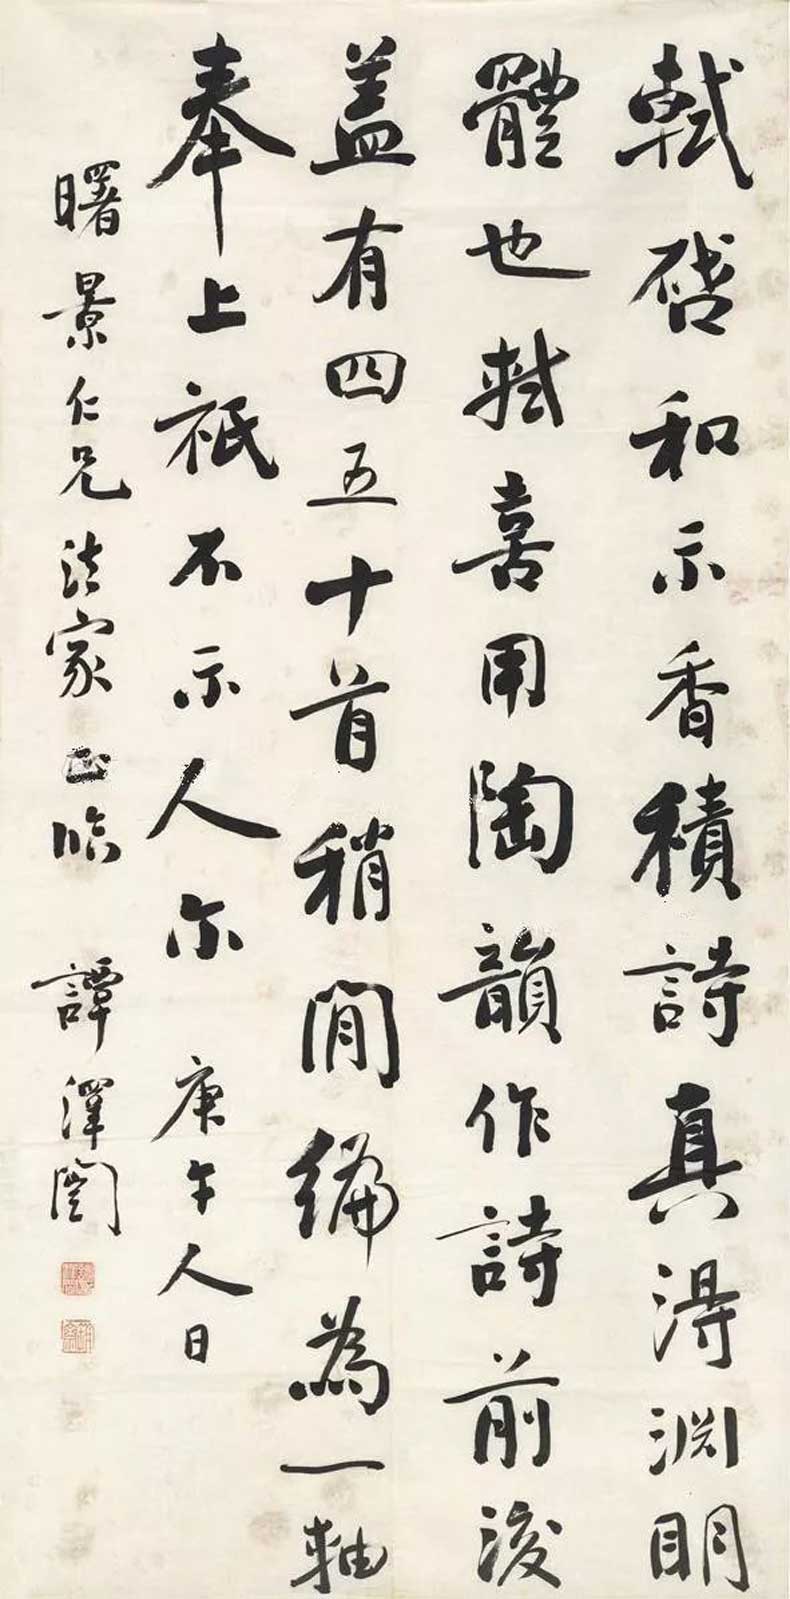 軾啓和示香積詩真得淵明
體也軾喜用陶韻作詩前後
蓋有四五十首稍閒編為一軸
奉上衹不示人尔 庚午人日
曙景仁兄法家正臨 譚澤闓